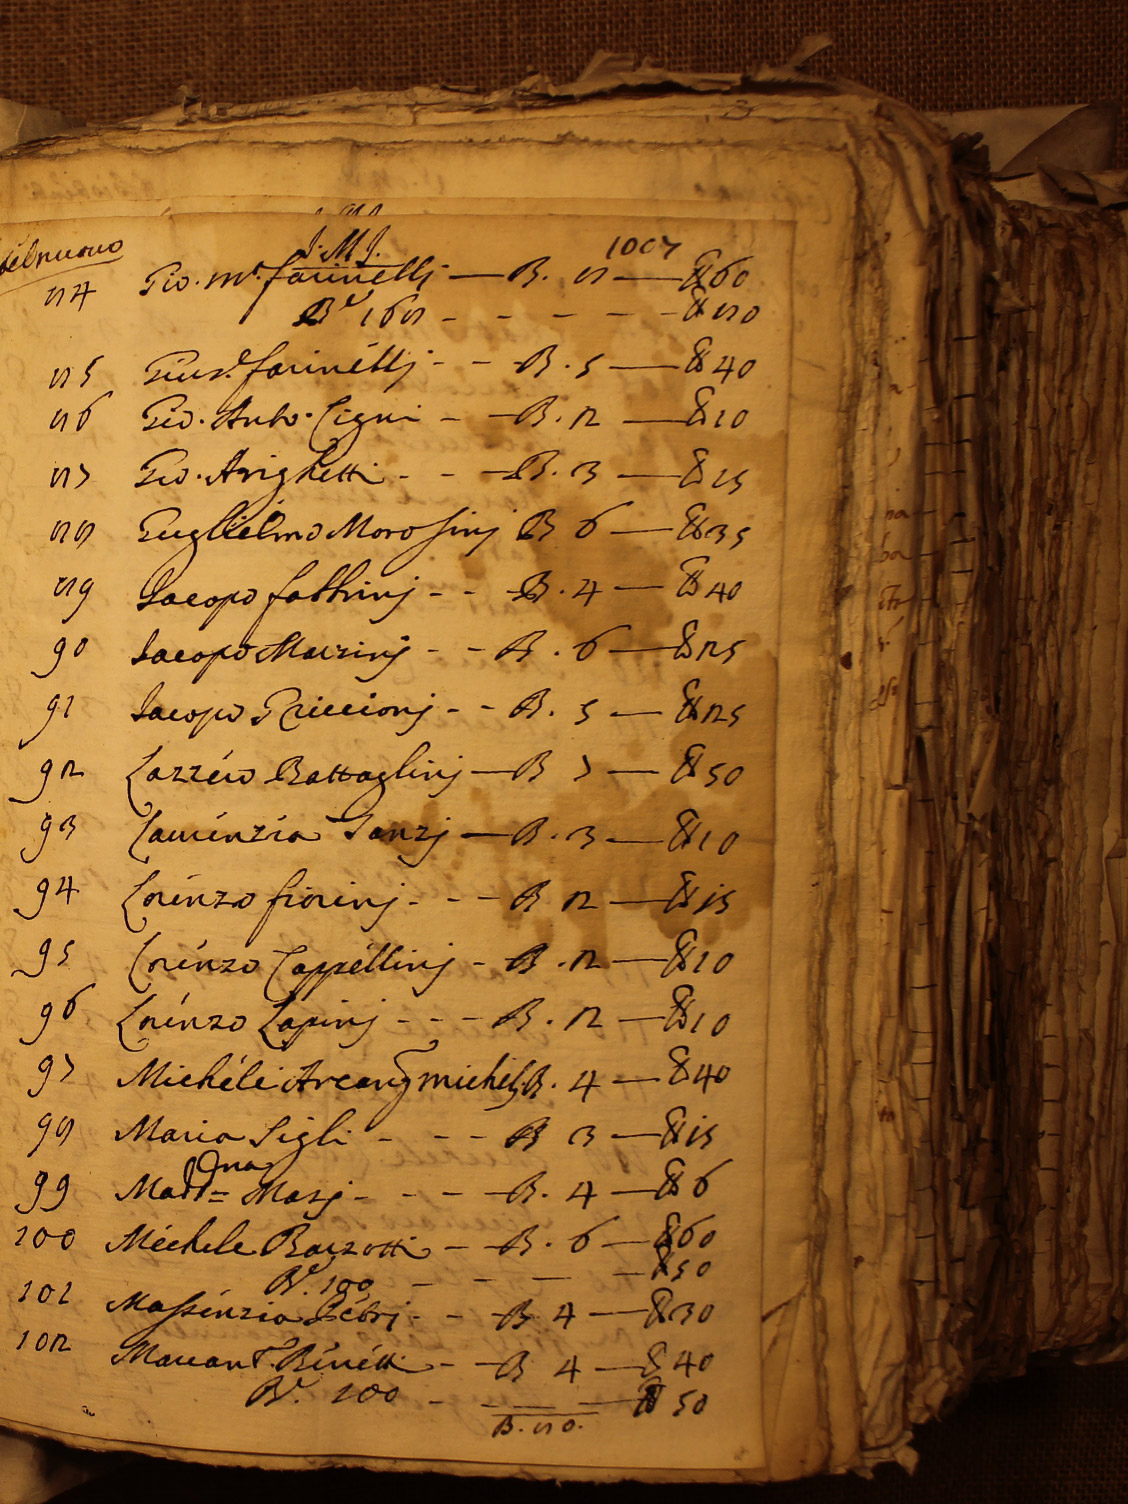 delnuovo
J. M. J.
84 Gio. M.ª farinellj — B. 8 — £ 60
B.e 168 - - - - - £ 80
85 Gius.e farinellj - - B. 5 — £ 40
86 Gio. Anto. Cigni - B. 2 — £ 10
87 Gio. Arighetti - - B. 3 — £ 15
88 Guglielmo Morosinj B 6 — £ 35
89 Iacopo fabbrinj - - B. 4 — £ 40
90 Iacopo Marzinj - - B. 6 — £ 25
91 Iacopo Riccionj - - B. 5 — £ 25
92 Lazzero Battaglinj — B 7 — £ 50
93 Laurenzia Sanzj — B. 3 — £ 10
94 Lorenzo fiorinj - - - B 2 — £ 15
95 Lorenzo Cappellinj - B. 2 — £ 10
96 Lorenzo Lapinj - - - B. 2 — £ 10
97 Michele Arcang michel. B. 4 — £ 40
98 Maria Sigli - - - B 3 — £ 15
99 Madd=na Masj - - - B. 4 — £ 6
100 Michele Barzotti - B. 6 — £ 60
B.e 100 - - - - £ 50
101 Massenzia Petrj - - B 4 — £ 30
102 Marcant.º Binetti - B 4 — £ 40
B.e 100 - - - £ 50
B. 80.